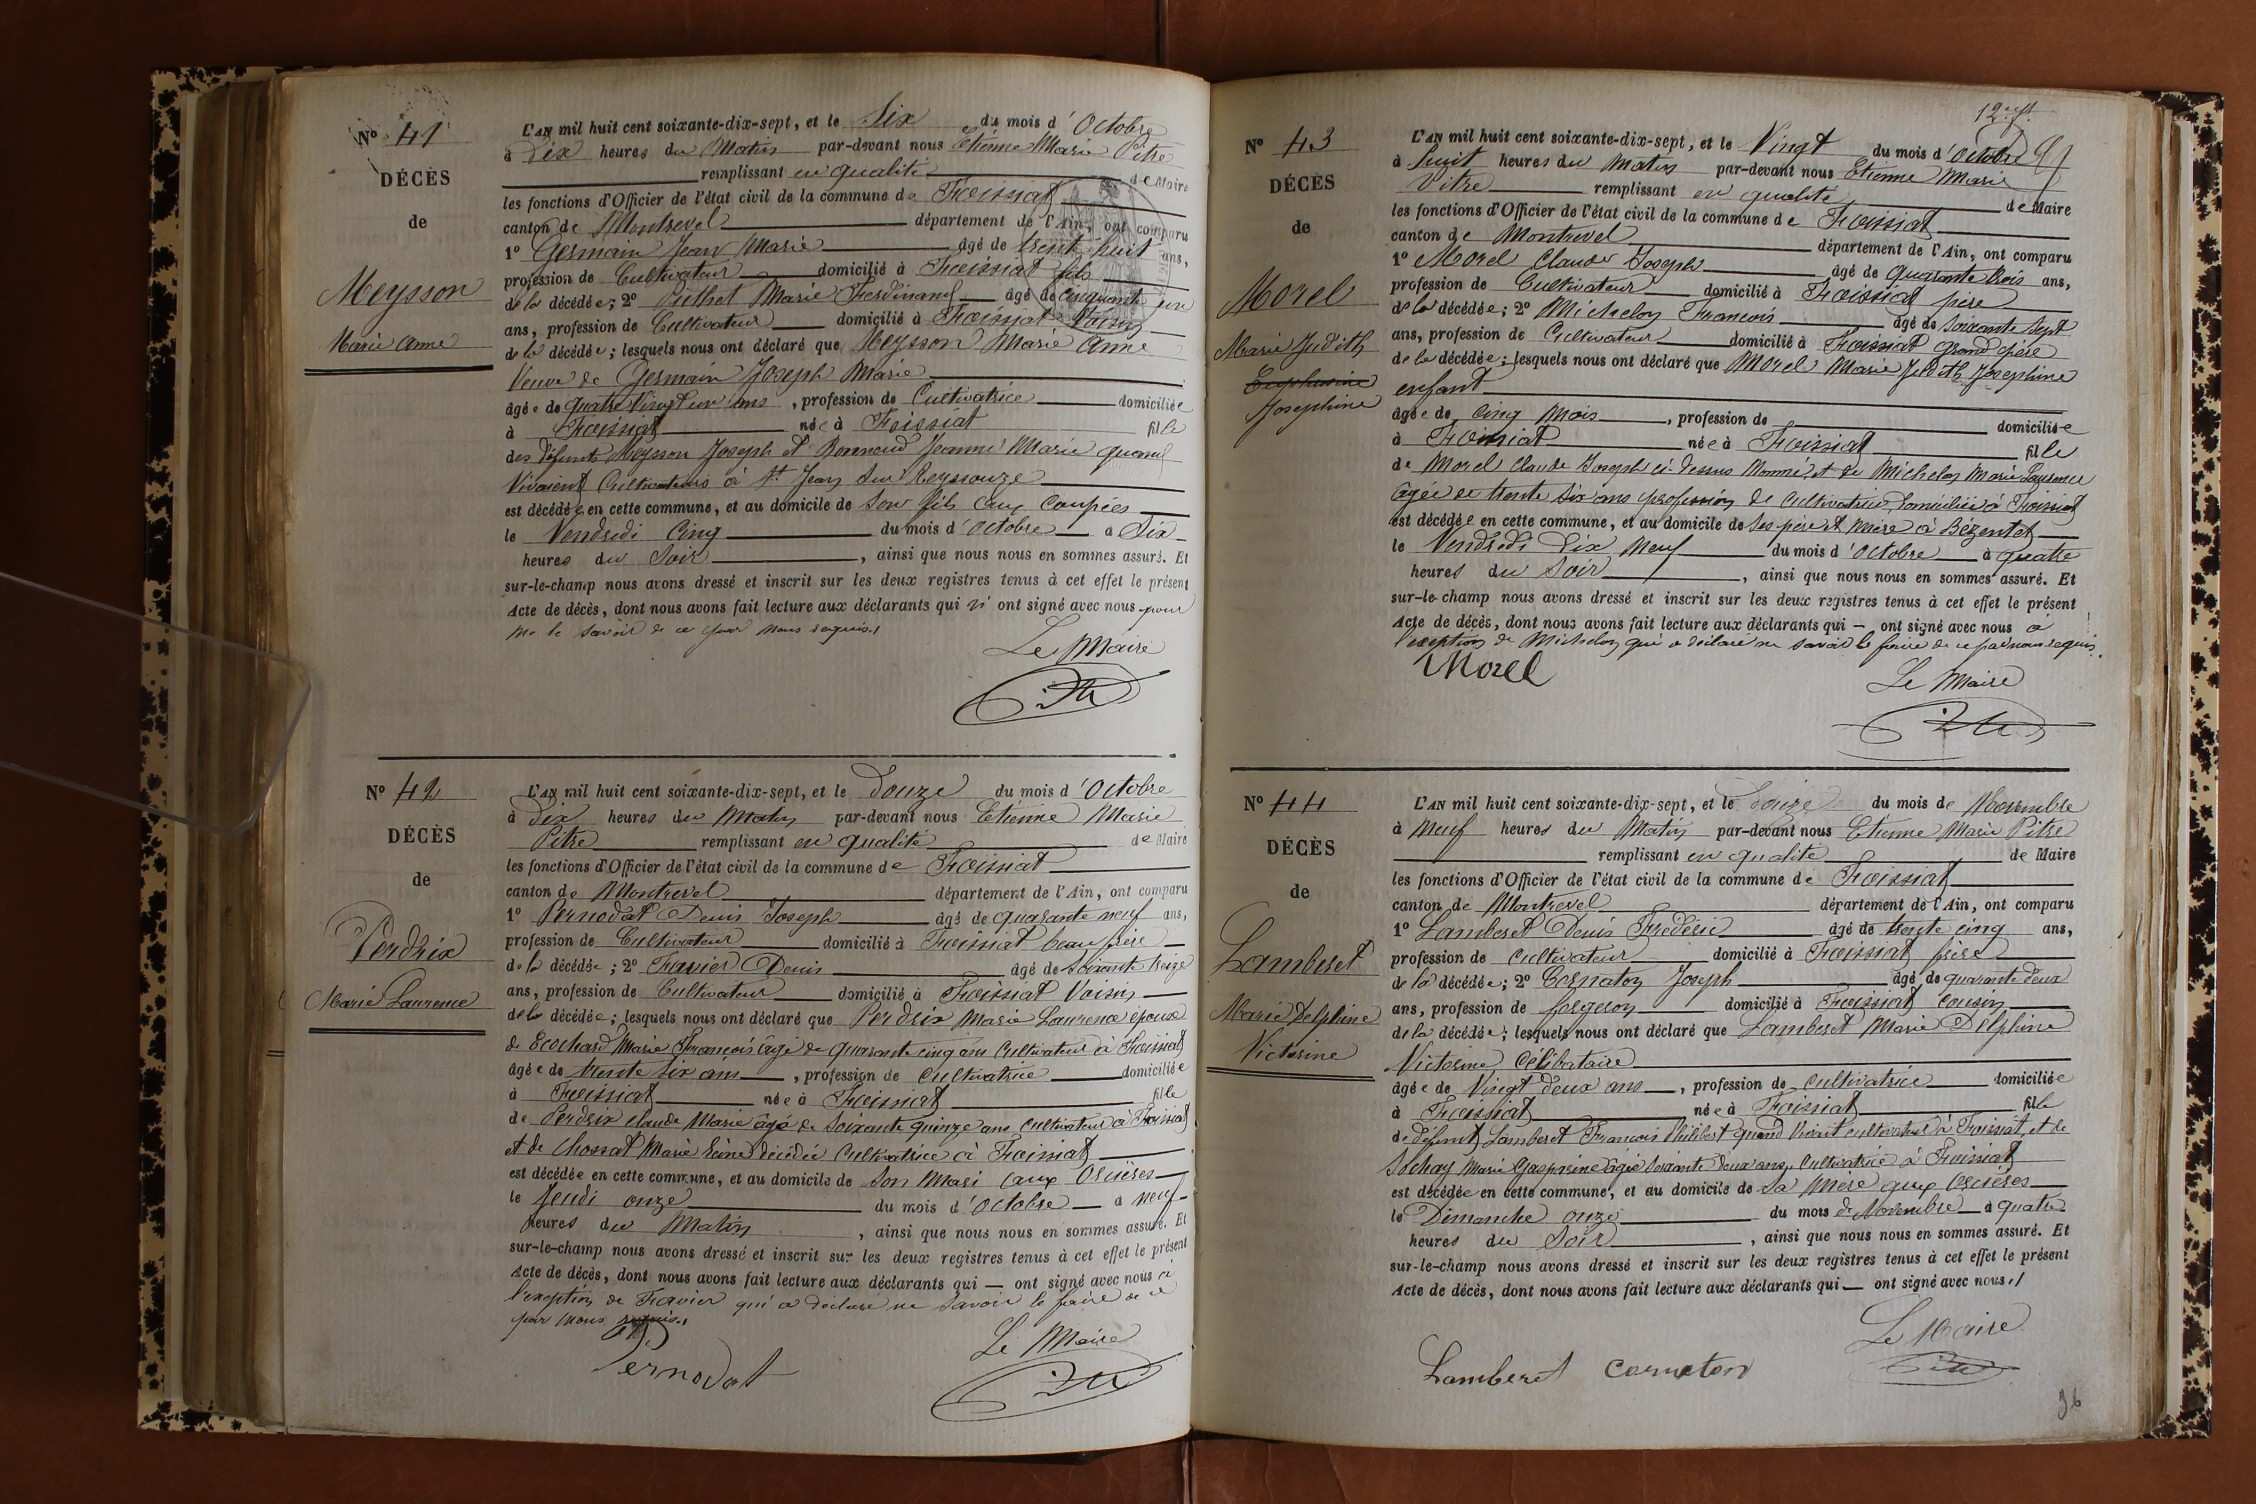 N° 41
DÉCÈS
de
Meysson
Marie Anne
L'AN mil huit cent soixante-dix-sept, et le Six du mois d'Octobre
à Dix heures du Matin par-devant nous Etienne Marie Pitre
remplissant en qualité de Maire
les fonctions d'Officier de l'état civil de la commune de Foissiat
canton de Montrevel département de l'Ain, ont comparu
1° Germain Jean Marie âgé de trente huit ans,
profession de Cultivateur domicilié à Foissiat fils
de la décédée; 2° Marie Ferdinand âgé de cinquante un
ans, profession de Cultivateur domicilié à Foissiat Voisin
de la décédée; lesquels nous ont déclaré que Meysson Marie Anne
Veuve de Germain Joseph Marie
âgée de quatre Vingt un ans, profession de Cultivatrice domiciliée
à Foissiat née à Foissiat fille
des défunts Meysson Joseph et Bonnaud Jeanne Marie quand
Vivaient Cultivateurs à St Jean sur Reyssouze
est décédée en cette commune, et au domicile de Son fils aux Coupées
le Vendredi Cinq du mois d'Octobre à Six
heures du Soir, ainsi que nous nous en sommes assuré. Et
sur-le-champ nous avons dressé et inscrit sur les deux registres tenus à cet effet le présent
Acte de décès, dont nous avons fait lecture aux déclarants qui n'ont signé avec nous pour
ne le savoir de ce par nous requis./
Le Maire
N° 42
DÉCÈS
de
Perdrix
Marie Laurence
L'AN mil huit cent soixante-dix-sept, et le Douze du mois d'Octobre
à Dix heures du Matin par-devant nous Etienne Marie
Pitre remplissant en qualité de Maire
les fonctions d'Officier de l'état civil de la commune de Foissiat
canton de Montrevel département de l'Ain, ont comparu
1° Pernodat Denis Joseph âgé de quarante neuf ans,
profession de Cultivateur domicilié à Foissiat beau frère
de la décédée; 2° Favier Denis âgé de Soixante treize
ans, profession de Cultivateur domicilié à Foissiat Voisin
de la décédée; lesquels nous ont déclaré que Perdrix Marie Laurence épouse
de Ecochard Marie François âgé de quarante cinq ans Cultivateur à Foissiat
âgée de trente six ans, profession de Cultivatrice domiciliée
à Foissiat née à Foissiat fille
de Perdrix Claude Marie âgé de Soixante quinze ans cultivateur à Foissiat
et de Chossat Marie Reine décédée Cultivatrice à Foissiat
est décédée en cette commune, et au domicile de Son Mari aux Oscières
le Jeudi onze du mois d'Octobre à neuf
heures du Matin, ainsi que nous nous en sommes assuré. Et
sur-le-champ nous avons dressé et inscrit sur les deux registres tenus à cet effet le présent
Acte de décès, dont nous avons fait lecture aux déclarants qui ont signé avec nous à
l'exception de Favier qui a déclaré ne savoir le faire de ce
par nous requis./
Pernodat
Le Maire
N° 43
DÉCÈS
de
Morel
Marie Judith
Josephine
L'AN mil huit cent soixante-dix-sept, et le Vingt du mois d'Octobre
à huit heures du Matin par-devant nous Etienne Marie
Pitre remplissant en qualité de Maire
les fonctions d'Officier de l'état civil de la commune de Foissiat
canton de Montrevel département de l'Ain, ont comparu
1° Morel Claude Joseph âgé de quarante trois ans,
profession de Cultivateur domicilié à Foissiat père
de la décédée; 2° Michelon François âgé de Soixante Sept
ans, profession de Cultivateur domicilié à Foissiat grand père
de la décédée; lesquels nous ont déclaré que Morel Marie Judith Josephine
enfant
âgée de cinq mois, profession de domiciliée
à Foissiat née à Foissiat fille
de Morel Claude Joseph ci-dessus Nommé et de Michelon Marie Laurence
âgée de trente Six ans profession de cultivatrice domiciliée à Foissiat
est décédée en cette commune, et au domicile de Ses père et mère à Bézentet
le Vendredi Dix Neuf du mois d'Octobre à quatre
heures du Soir, ainsi que nous nous en sommes assuré. Et
sur-le-champ nous avons dressé et inscrit sur les deux registres tenus à cet effet le présent
Acte de décès, dont nous avons fait lecture aux déclarants qui ont signé avec nous à
l'exception de Michelon qui a déclaré ne savoir le faire de ce par nous requis.
Morel
Le Maire
N° 44
DÉCÈS
de
Lamberet
Marie Delphine
Victorine
L'AN mil huit cent soixante-dix-sept, et le Douze du mois de Novembre
à Neuf heures du Matin par-devant nous Etienne Marie Pitre
remplissant en qualité de Maire
les fonctions d'Officier de l'état civil de la commune de Foissiat
canton de Montrevel département de l'Ain, ont comparu
1° Lamberet Denis Frédéric âgé de trente cinq ans,
profession de cultivateur domicilié à Foissiat frère
de la décédée; 2° Cornaton Joseph âgé de quarante deux
ans, profession de forgeron domicilié à Foissiat cousin
de la décédée; lesquels nous ont déclaré que Lamberet Marie Delphine
Victorine Célibataire
âgée de Vingt deux ans, profession de cultivatrice domiciliée
à Foissiat née à Foissiat fille
de défunt Lamberet François Philibert quand Vivait cultivateur à Foissiat et de
Sochay Marie Gasparine âgée Soixante deux ans, Cultivatrice à Foissiat
est décédée en cette commune, et au domicile de Sa Mère aux Oscières
le Dimanche onze du mois de Novembre à quatre
heures du Soir, ainsi que nous nous en sommes assuré. Et
sur-le-champ nous avons dressé et inscrit sur les deux registres tenus à cet effet le présent
Acte de décès, dont nous avons fait lecture aux déclarants qui ont signé avec nous./
Le Maire
Lamberet Cornaton